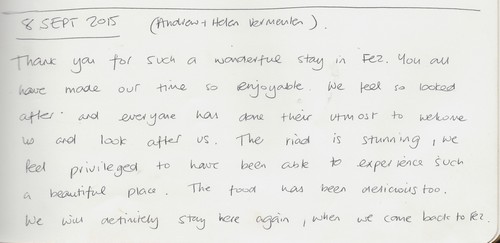 8 SEPT 2015 (Andrew + Helen Vermeulen).
Thank you for such a wonderful stay in Fez. You all
have made our time so enjoyable. We feel so looked
after and everyone has done their utmost to welcome
us and look after us. The riad is stunning, we
feel privileged to have been able to experience such
a beautiful place. The food has been delicious too.
We will definitely stay here again, when we come back to Fez.